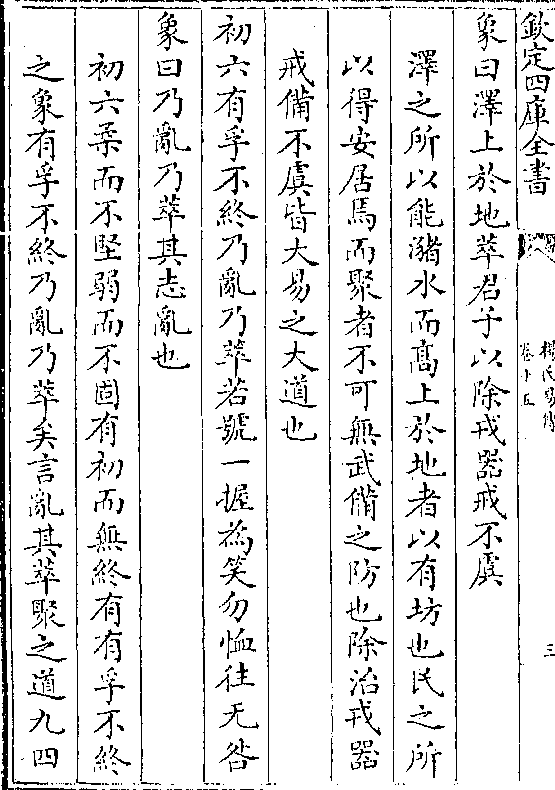 欽定四庫全書
楊氏易傳
卷十五
三
象曰澤上於地萃君子以除戎器戒不虞
澤之所以能瀦水而髙上於地者以有坊也民之所
以得安居焉而聚者不可無武備之防也除治戎器
戒備不虞皆大易之大道也
初六有孚不終乃亂乃萃若號一握為笑勿恤往无咎
象曰乃亂乃萃其志亂也
初六柔而不堅弱而不固有初而無終有有孚不終
之象有孚不終乃亂乃萃矣言亂其萃聚之道九四